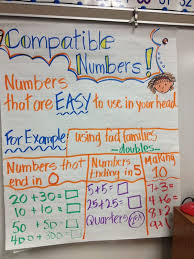 Compatible
Numbers!
Numbers
that are EASY to use in your head.
For Example: using fact families
-doubles-
Numbers that
end in 0
20+30=
10+10=
50+50=
Numbers
Ending in 5
5+5=
25+25=
Quarters
Making
10
7+3